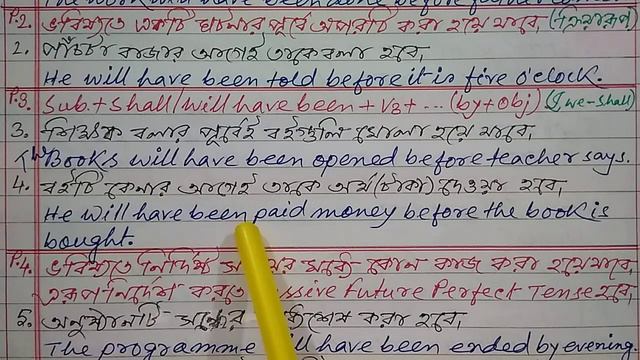 P.2. ভবিষ্যতে একটি ঘটনার পূর্বে অপরটি করা হয়ে যাবে, (ক্রিয়ারূপ)
2. পাঁচটা বাজার আগেই তাকে বলা হবে,
He will have been told before it is five o'clock.
P.3. Sub.+ Shall/will have been + V3 + ... (by+Obj) (I, we-shall)
3. শিক্ষক বলার পূর্বেই বইগুলি খোলা হয়ে যাবে,
Books will have been opened before teacher says.
4. বইটি কেনার আগেই তাকে অর্থ (টাকা) দেওয়া হবে,
He will have been paid money before the book is
bought.
P.4. ভবিষ্যতে নির্দিষ্ট মধ্যে কোন কাজ করা হয়ে যাবে,
এরূপ নির্দেশ করতে Future Perfect Tense হবে,
5. অনুষ্ঠানটি করা হবে,
The programme have been ended by evening.